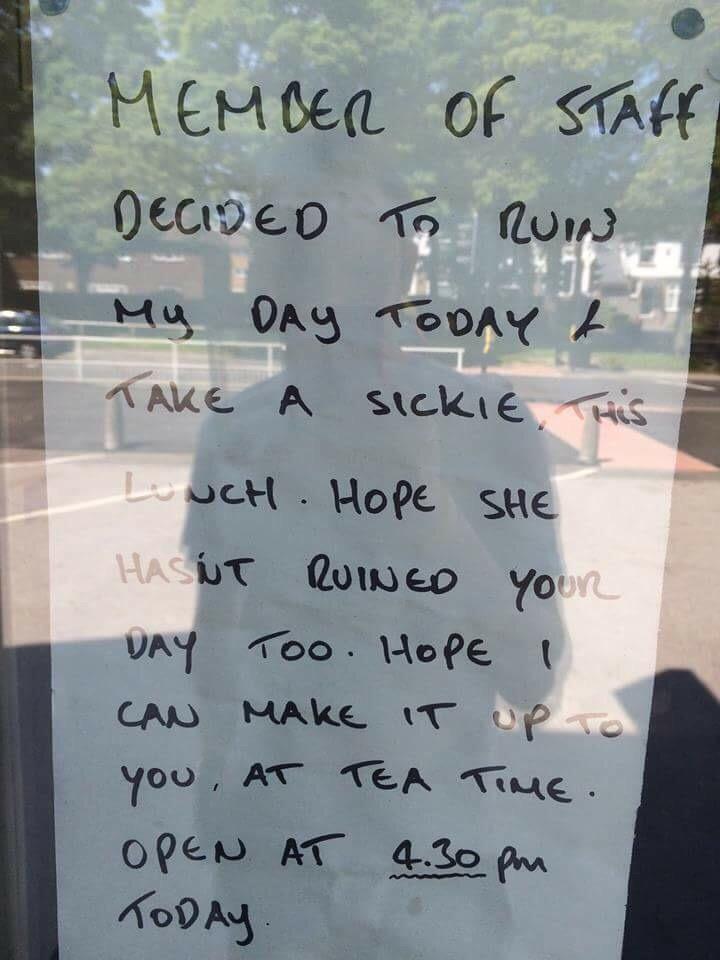 MEMBER OF STAFF
DECIDED TO RUIN
MY DAY TODAY &
TAKE A SICKIE, THIS
LUNCH. HOPE SHE
HASN'T RUINED YOUR
DAY TOO. HOPE I
CAN MAKE IT UP TO
YOU, AT TEA TIME.
OPEN AT 4.30 pm
TODAY.